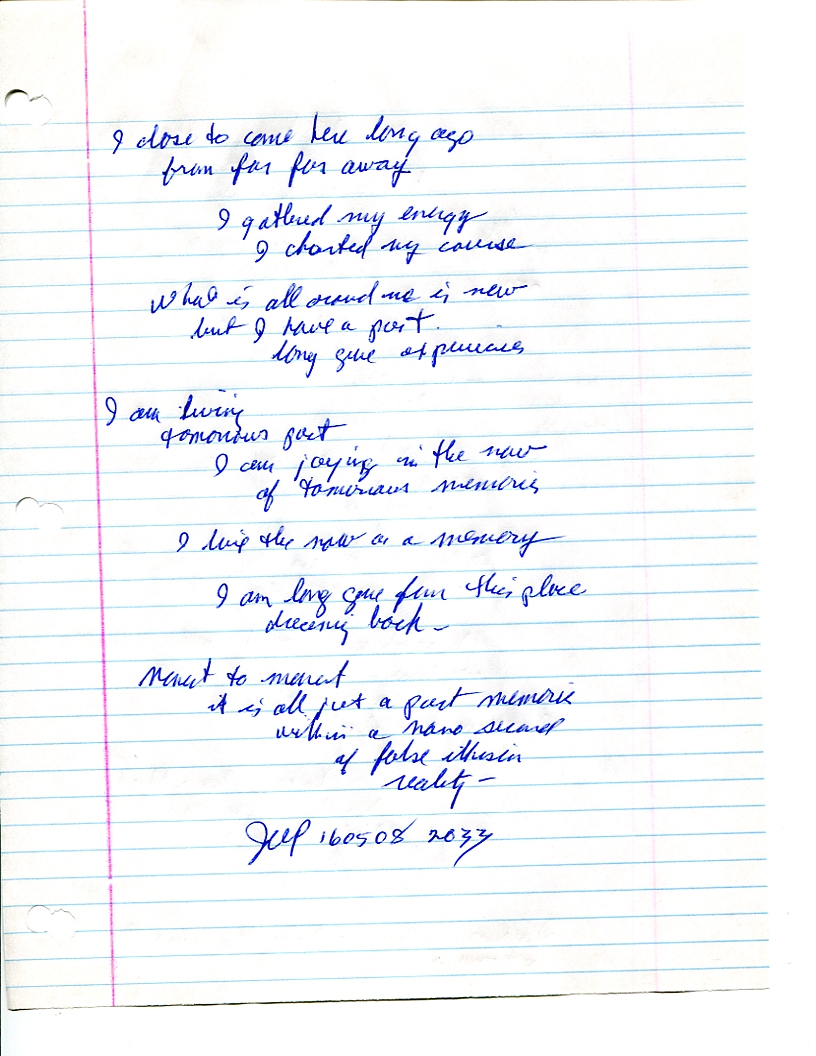 I chose to come here long ago
from far far away
I gathered my energy
I charted my course
What is all around me is new
but I have a past.
long gone experiences
I am living
tomorrows past
I am joying in the now
of tomorrows memories
I live the now as a memory
I am long gone from this place
dreaming back –
Moment to moment
it is all just a past memorie
within a nano second
of false illusion
reality –
160508 2033